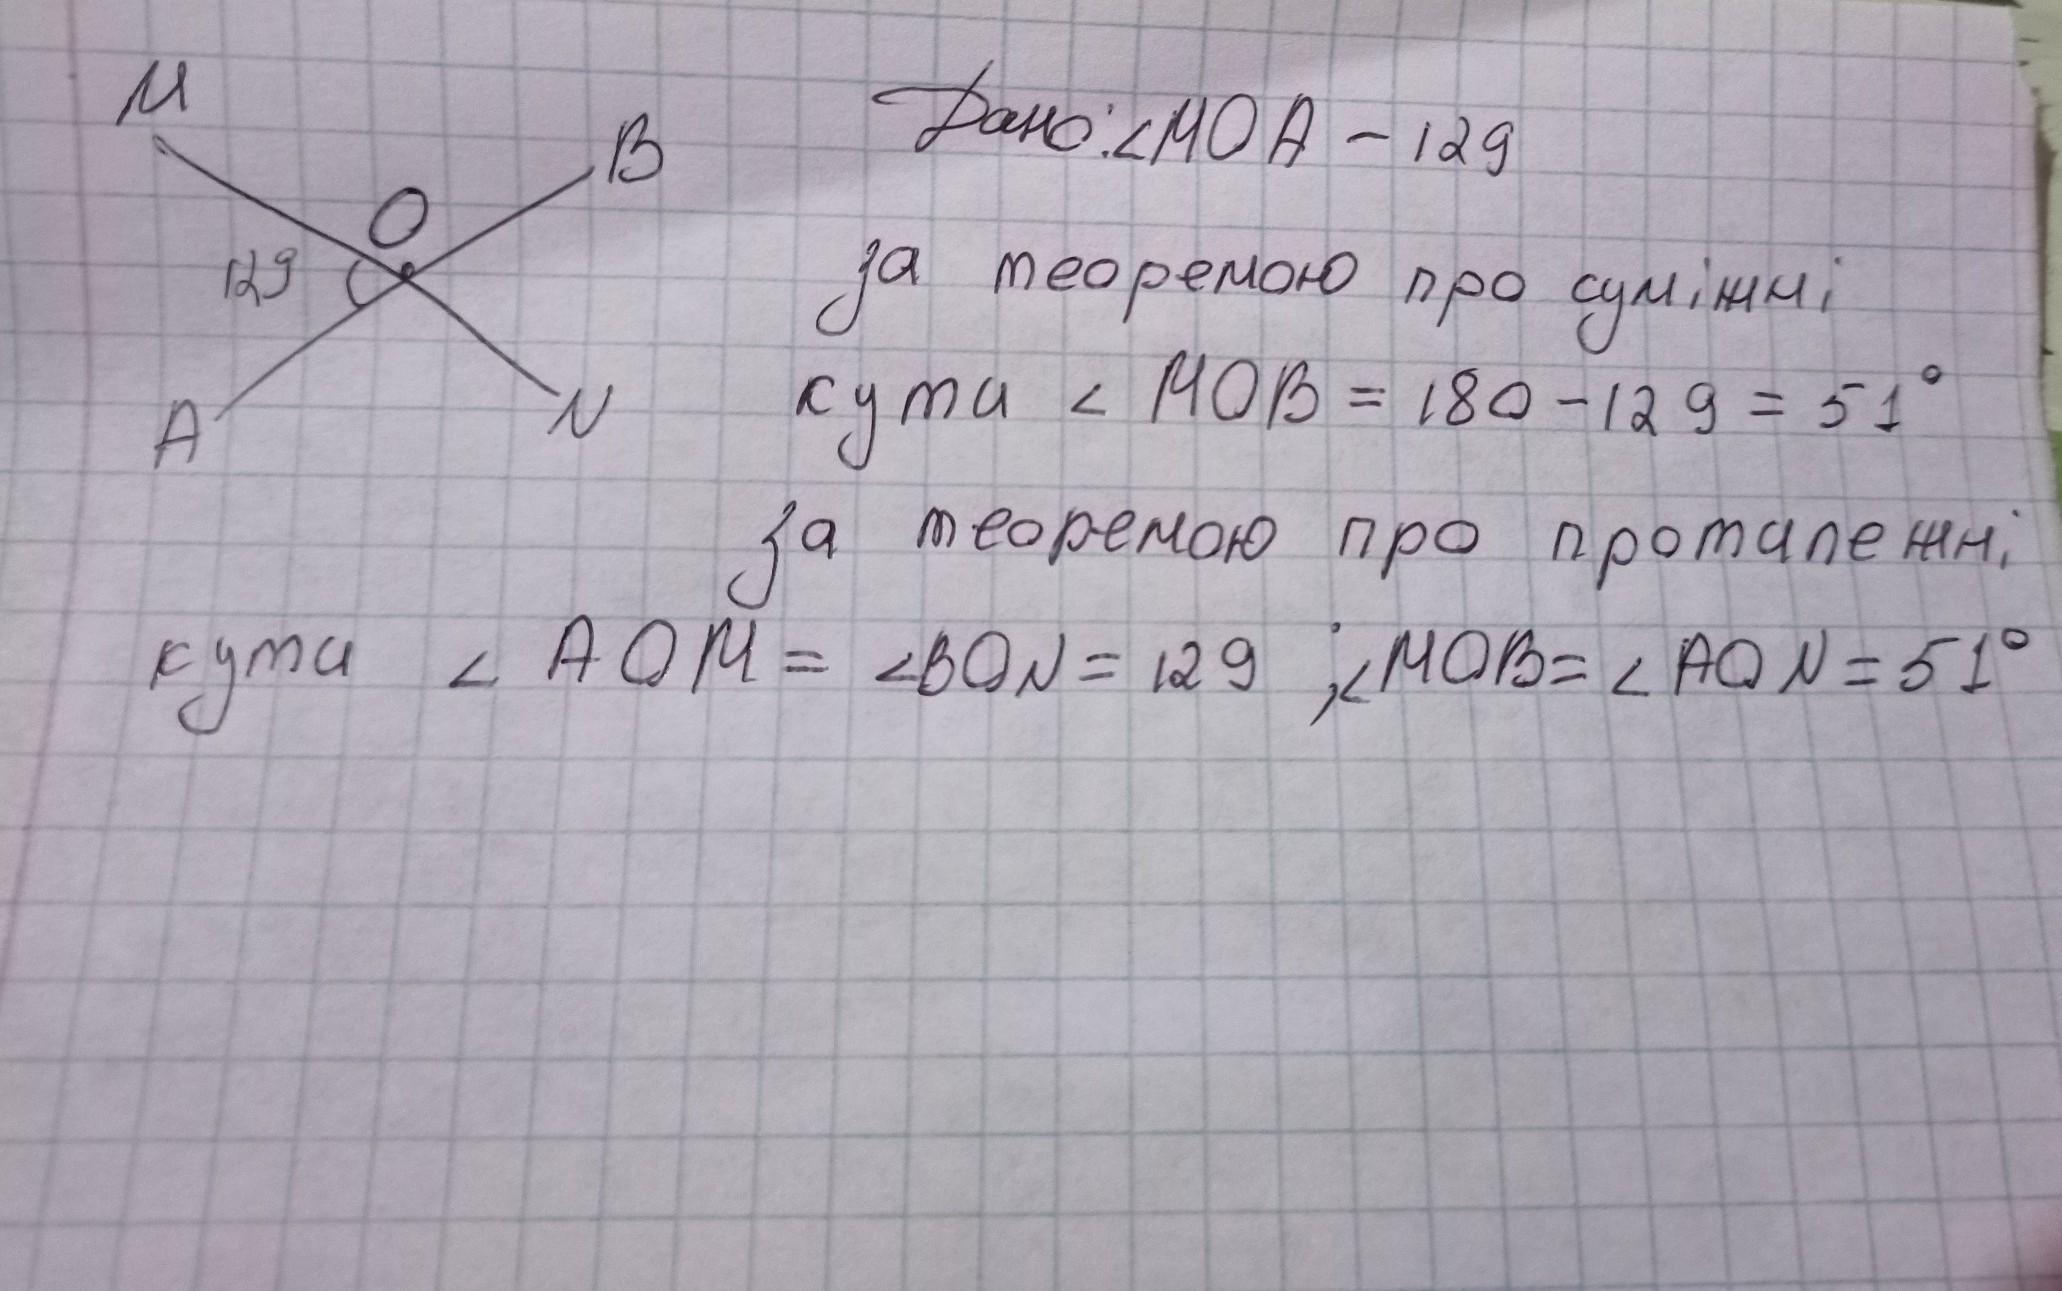 M
B
O
129
A
N
Дано: <MOA – 129
за теоремою про суміжні
кути < MOB = 180 – 129 = 51°
за теоремою про протилежні
кути < AOM = <BON = 129 ; <MOB = < AON = 51°